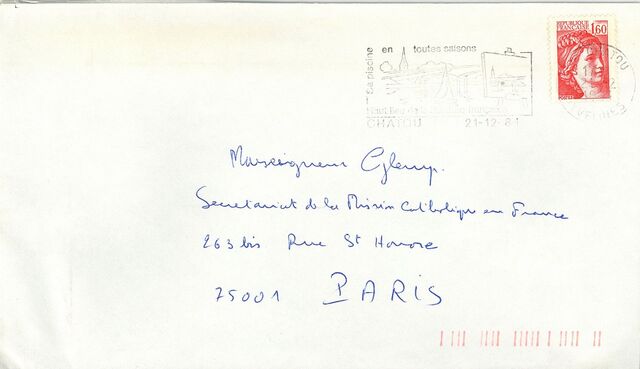 Sa piscine en toutes saisons
REPUBLIQUE FRANCAISE 1,60
CHATOU 21-12-81
Monseigneur Glemp.
Secretariat de la Mission Catholique en France
263 bis Rue St Honore
75001 PARIS